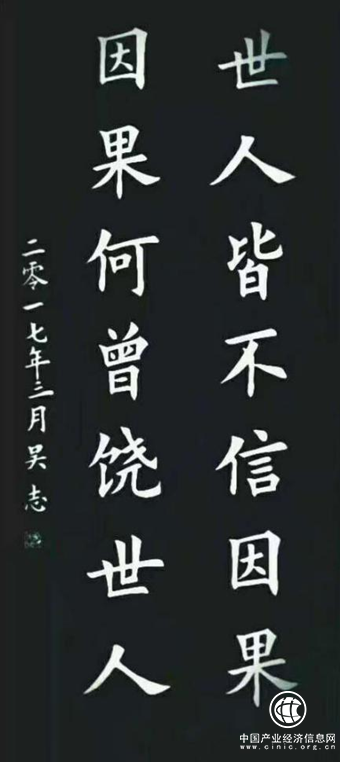 世人皆不信因果
因果何曾饶世人
二零一七年三月吴志
中国产业经济信息网
www.cinic.org.cn